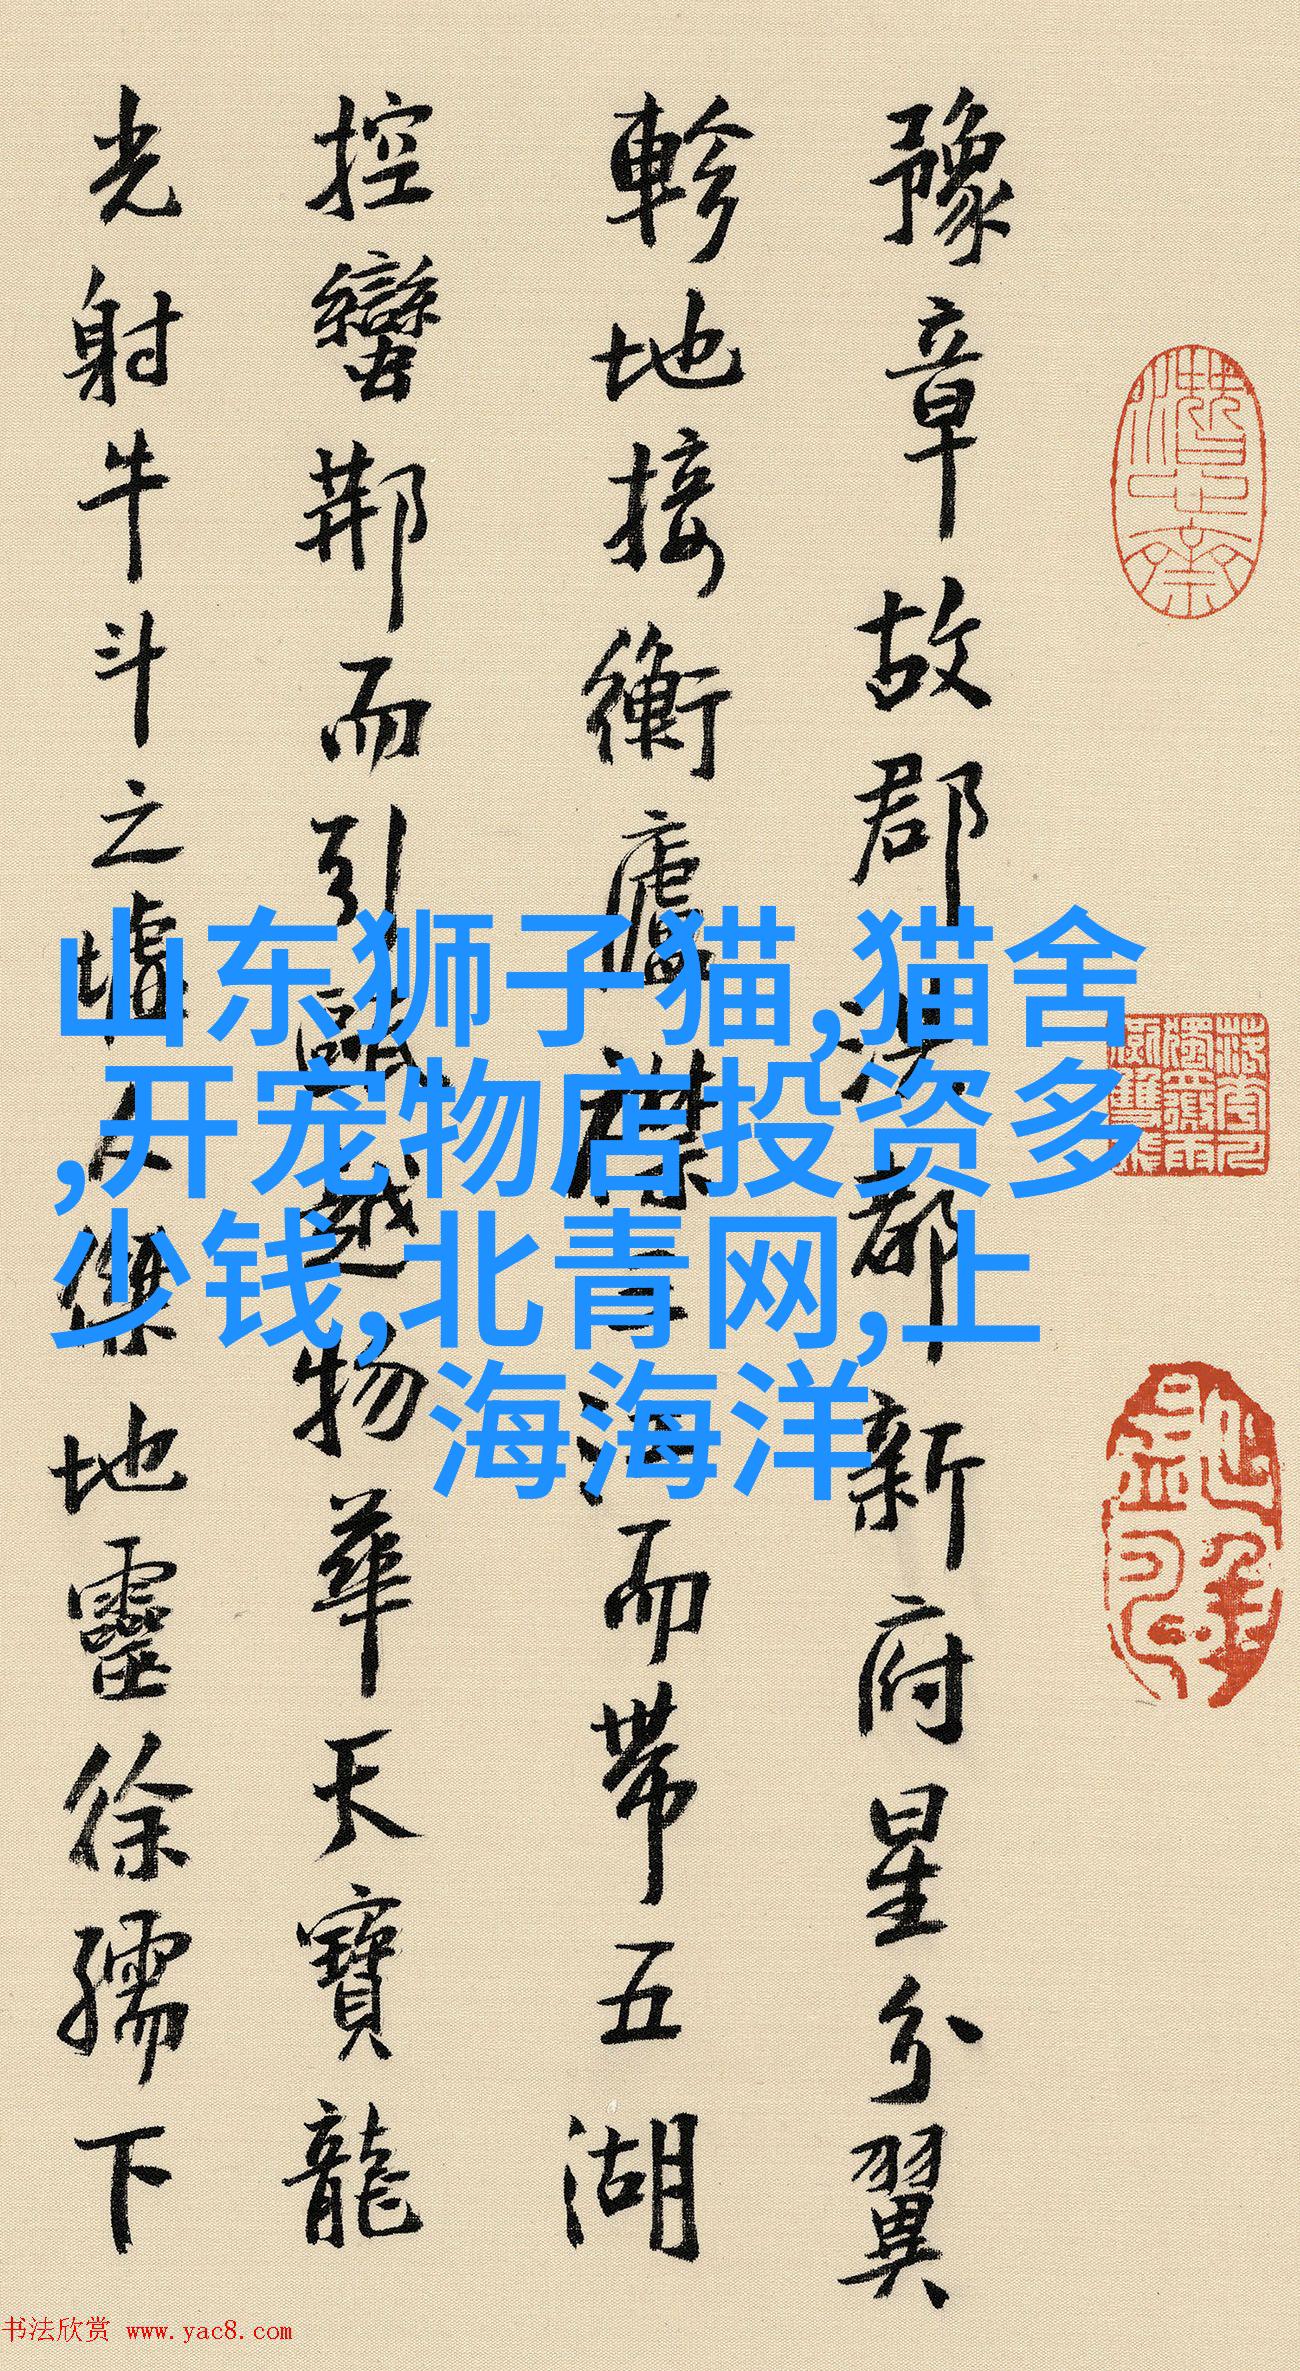 豫章故郡洪都新府星分翼
軫地接衡廬襟三江而帶五湖
控蠻荆而引甌越物華天寶龍
光射牛斗之墟人傑地靈徐孺下
山东狮子猫,猫舍
,开宠物店投资多
少钱,北青网,上
海海洋
书法欣赏 www.yac8.com